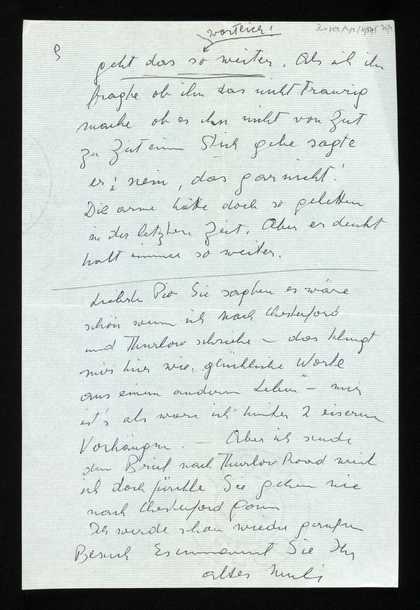 wörtlich!
9
geht das so weiter. Als ich ihn
fragte ob ihn das nicht traurig
mache ob es ihm nicht von Zeit
zu Zeit einen Stich gebe sagte
er: nein, das gar nicht!
Die arme hätte doch so gelitten
in der letzten Zeit. Aber er denkt
halt immer so weiter.
Liebste Sie sagten es wäre
schön wenn ich nach Chesterford
und Thurlow schriebe – das klingt
mir hier wie, glückliche Worte
aus einem anderen Leben" – mir
ist's als wäre ich hinter 2 eisernen
Vorhängen. – Aber ich sende
den Brief nach Thurlow Road weil
ich doch fürchte Sie gehen nie
nach Chesterford
Ich werde schon wieder
Besuch Sie Ihr
altes